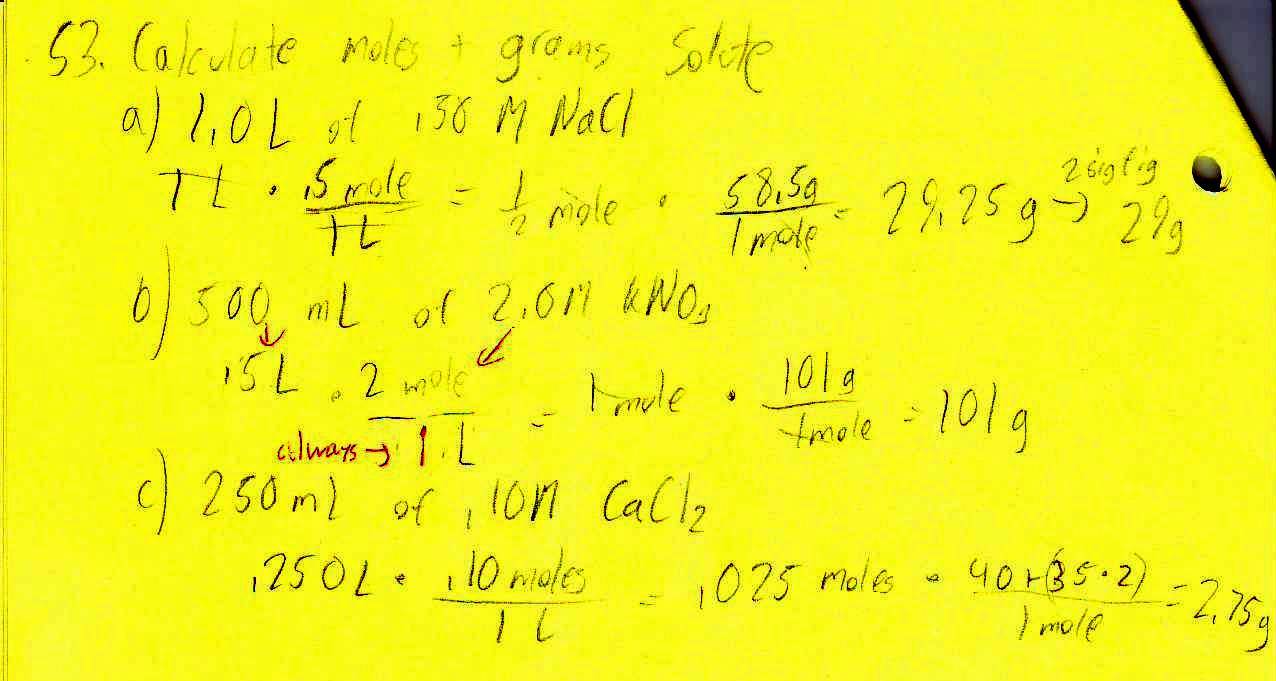 53. Calculate moles + grams Solute
a) 1.0 L of .50 M NaCl
1 L · .5 mole / 1 L = 1/2 mole · 58.5g / 1 mole = 29.25 g → 2 sig fig 29g
b) 500 mL of 2.0M KNO3
.5 L · 2 mole / 1 L = 1 mole · 101 g / 1 mole = 101 g
always →
c) 250 ml of .10M CaCl2
.250 L · .10 moles / 1 L = .025 moles · 40+(35·2) / 1 mole = 2.75g